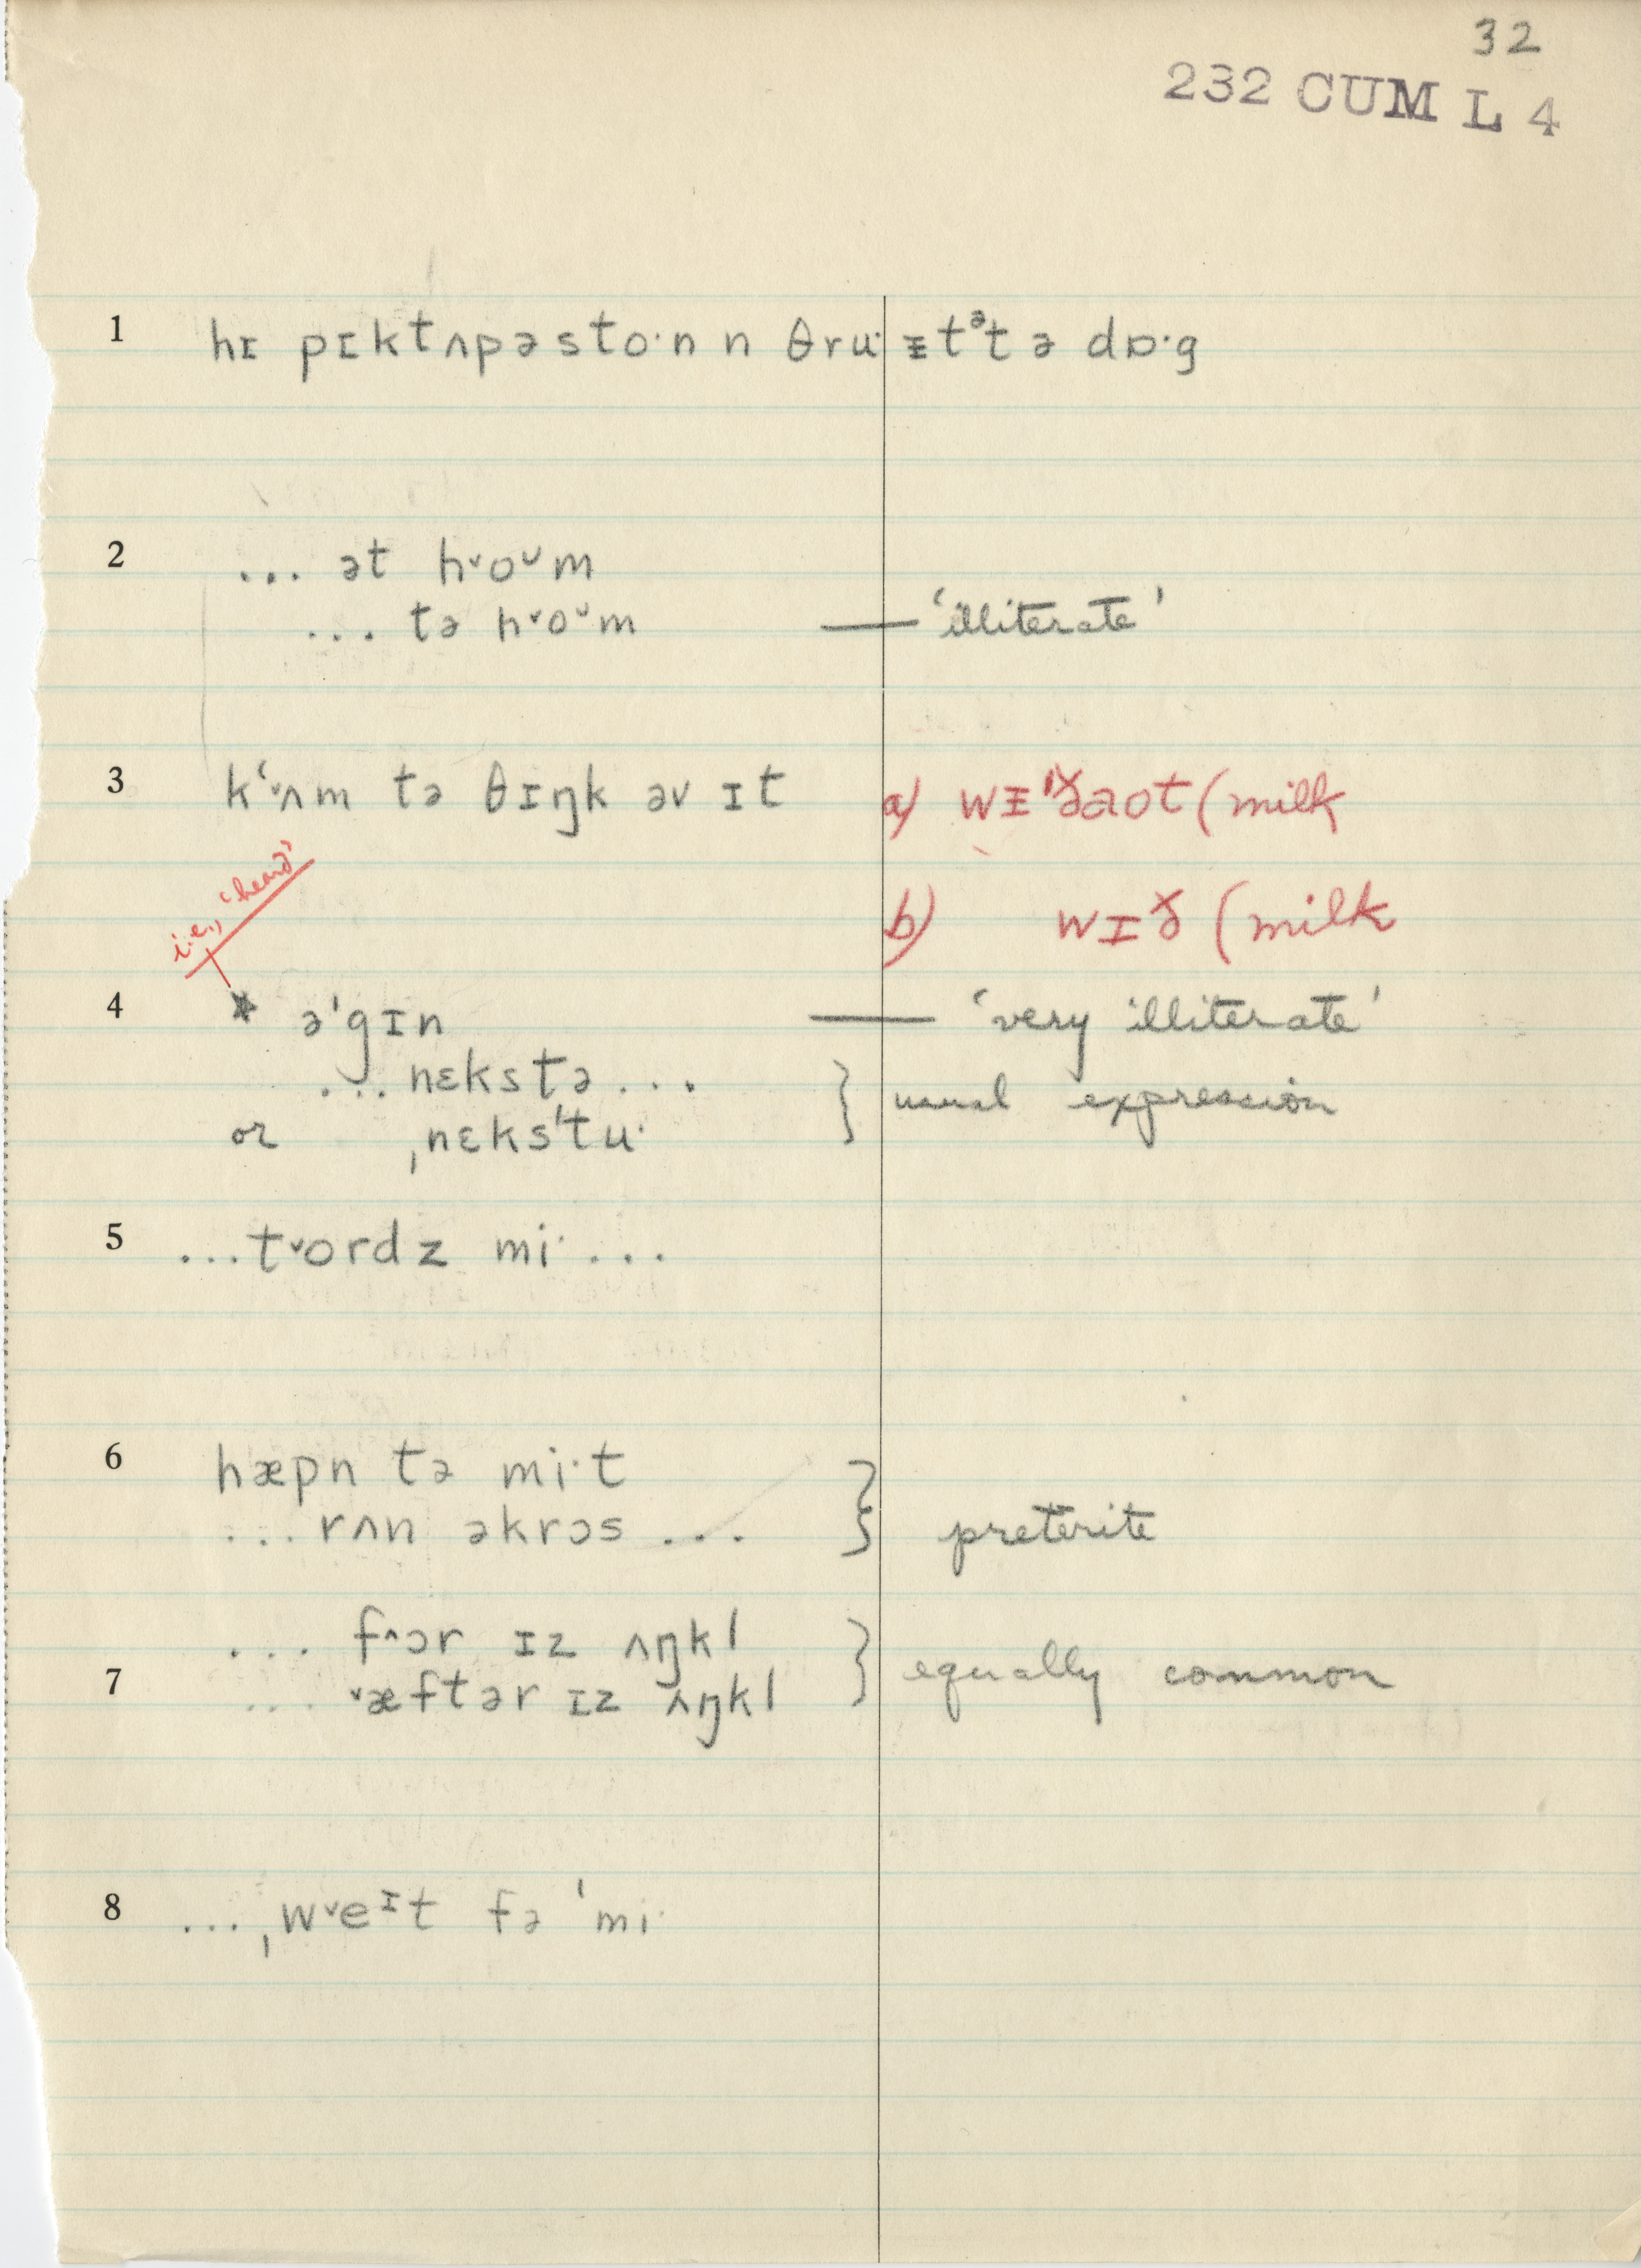 32
232 CUM L 4
1 hɪ pɪktʌpəsto·n n θru· ᵻtᵊt ə dɒ·g
2 ... ət h˅oᵕm
... tə h˅oᵕm — 'illiterate'
3 kʻ˅ʌm tə θɪŋk əv ɪt a) wᵻˈɤ̆aot (milk
i.e., 'heard' b) wɪɤ̆ (milk
4 * əˈgɪn — 'very illiterate'
... nɛkstə ... } usual expression
or ˌnɛksˈtu·
5 ...t˅ordz mi· ...
6 hæpn tə mi·t
... rʌn əkrɔs ... } preterite
... f^ɔr ɪz ʌŋkl
7 ... ˅æftər ɪz ʌŋkl } equally common
8 ... ˌw˅eᶦt fə ˈmi·